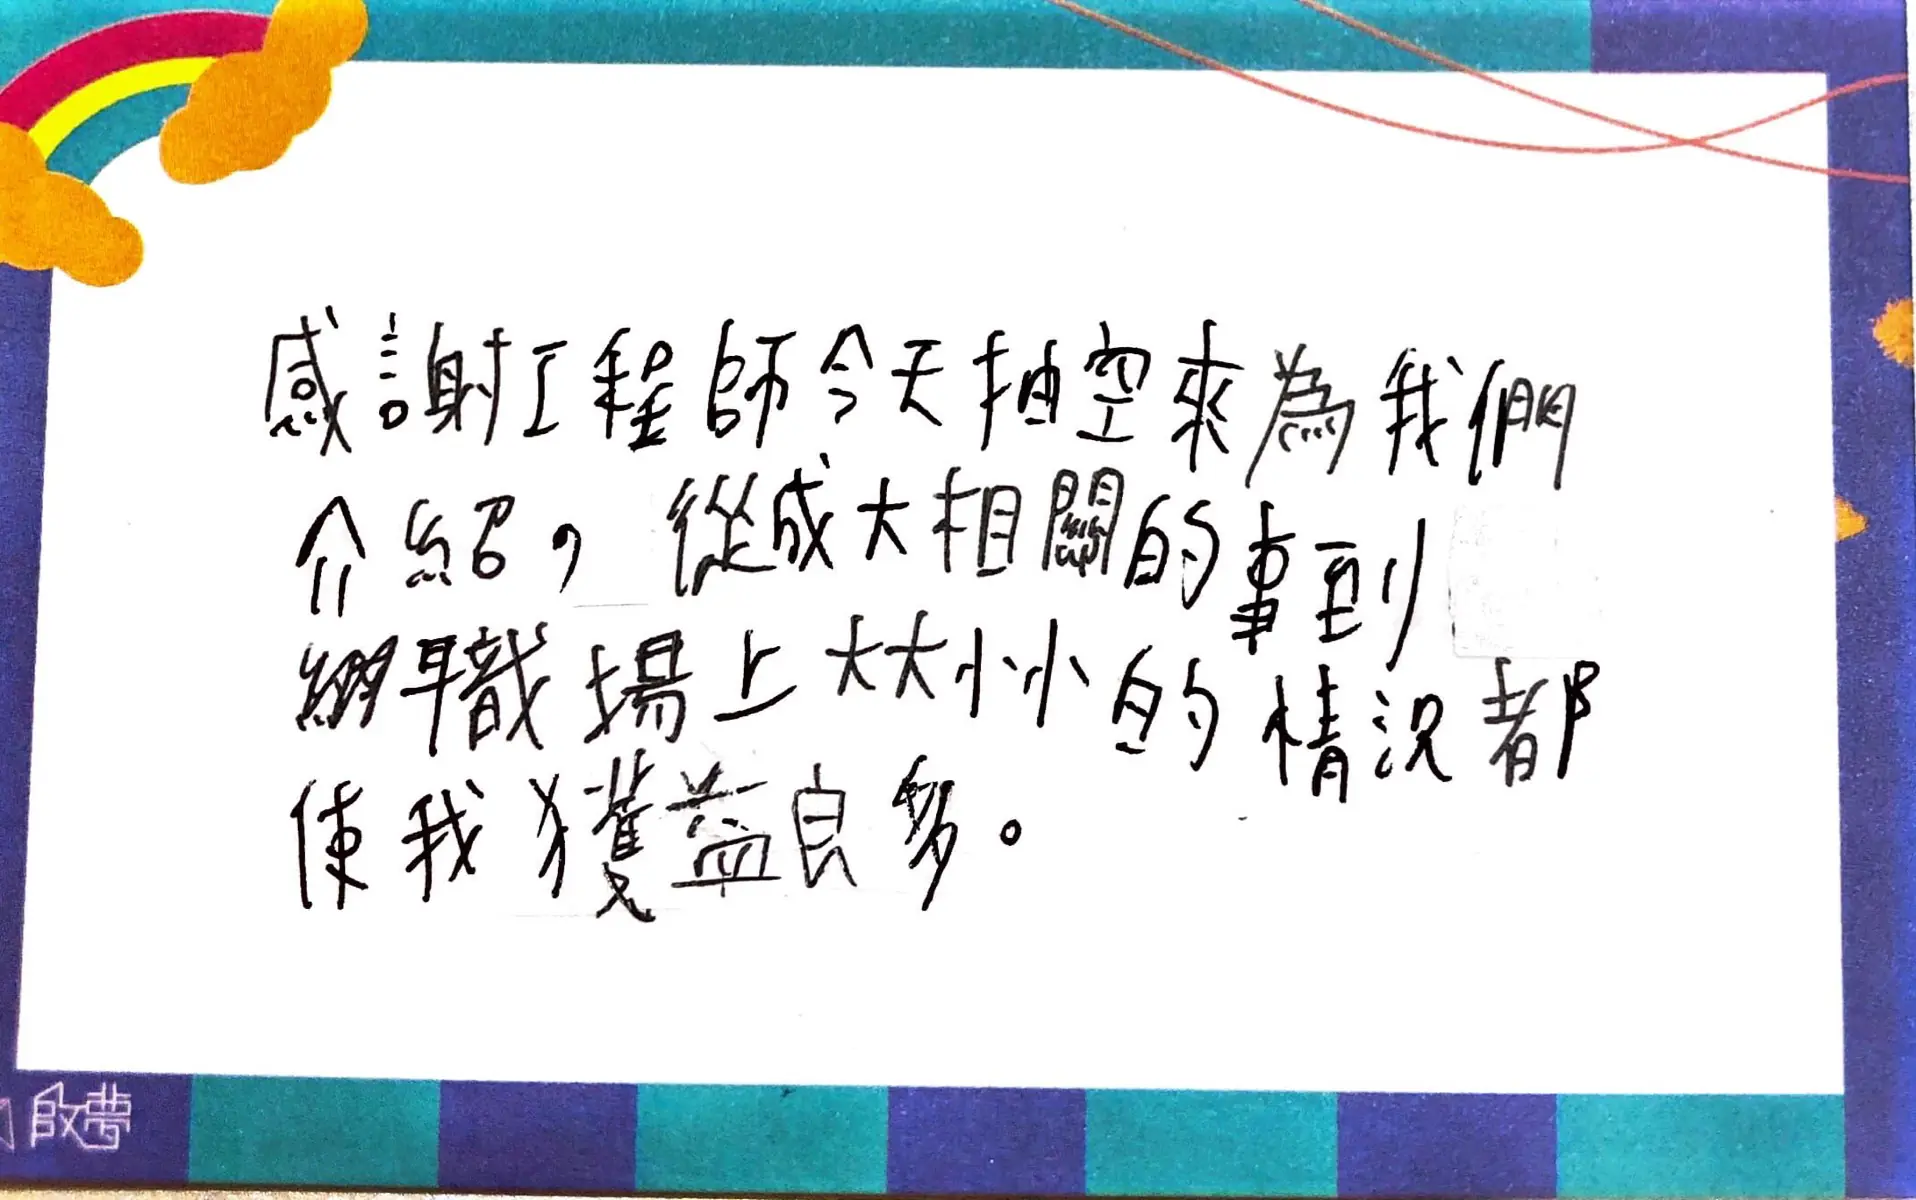 感謝工程師今天抽空來為我們
介紹，從成大相關的事到
職場上大大小小的情況都
使我獲益良多。
啟夢